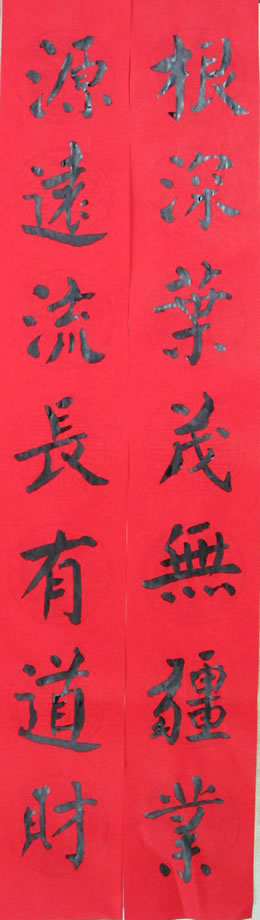 根深葉茂無疆業
源遠流長有道財